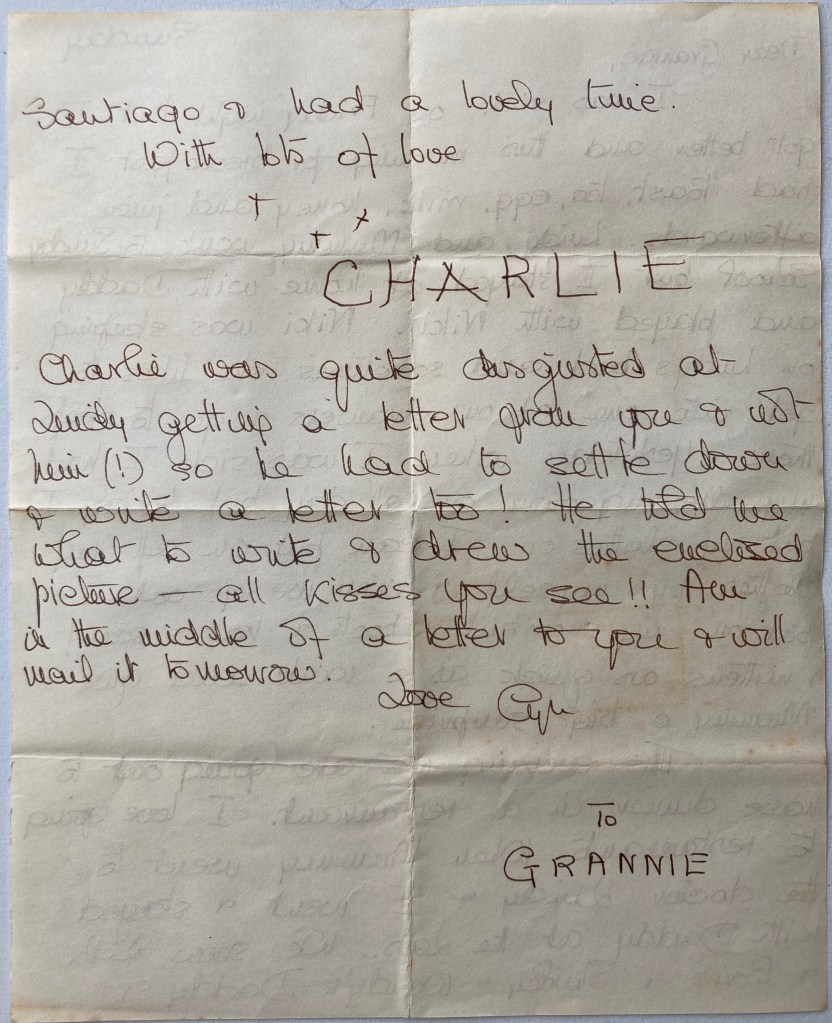 Santiago & had a lovely time.
With lots of love
+
+ x
CHARLIE
Charlie was quite disgusted at
getting a letter from you & not
him (!) so he had to settle down
& write a letter too! He told me
what to write & drew the enclosed
picture — all kisses you see!! Am
in the middle of a letter to you & will
mail it tomorrow.
Love
To
GRANNIE